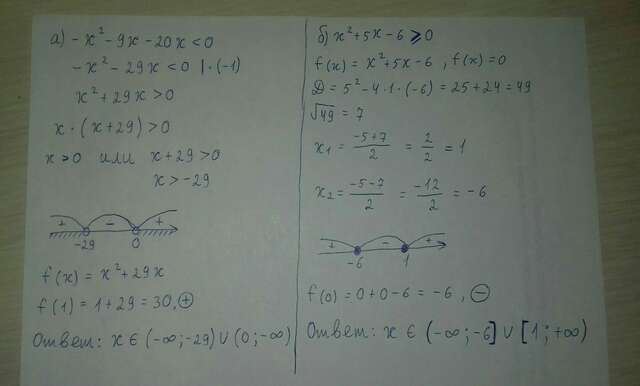 а) -x² -9x -20x < 0
-x² - 29x < 0 | · (-1)
x² + 29x > 0
x · (x + 29) > 0
x > 0 или x + 29 > 0
x > -29
+ - +
-29 0
f(x) = x² + 29x
f(1) = 1 + 29 = 30, ⊕
Ответ: x ∈ (-∞; -29) ∪ (0; -∞)
б) x² + 5x - 6 ⩾ 0
f(x) = x² + 5x - 6 , f(x) = 0
D = 5² - 4 · 1 · (-6) = 25 + 24 = 49
√49 = 7
x₁ = (-5+7)/2 = 2/2 = 1
x₂ = (-5-7)/2 = -12/2 = -6
- +
-6 1
f(0) = 0 + 0 - 6 = -6 , ⊖
Ответ: x ∈ (-∞; -6] ∪ [1; +∞)